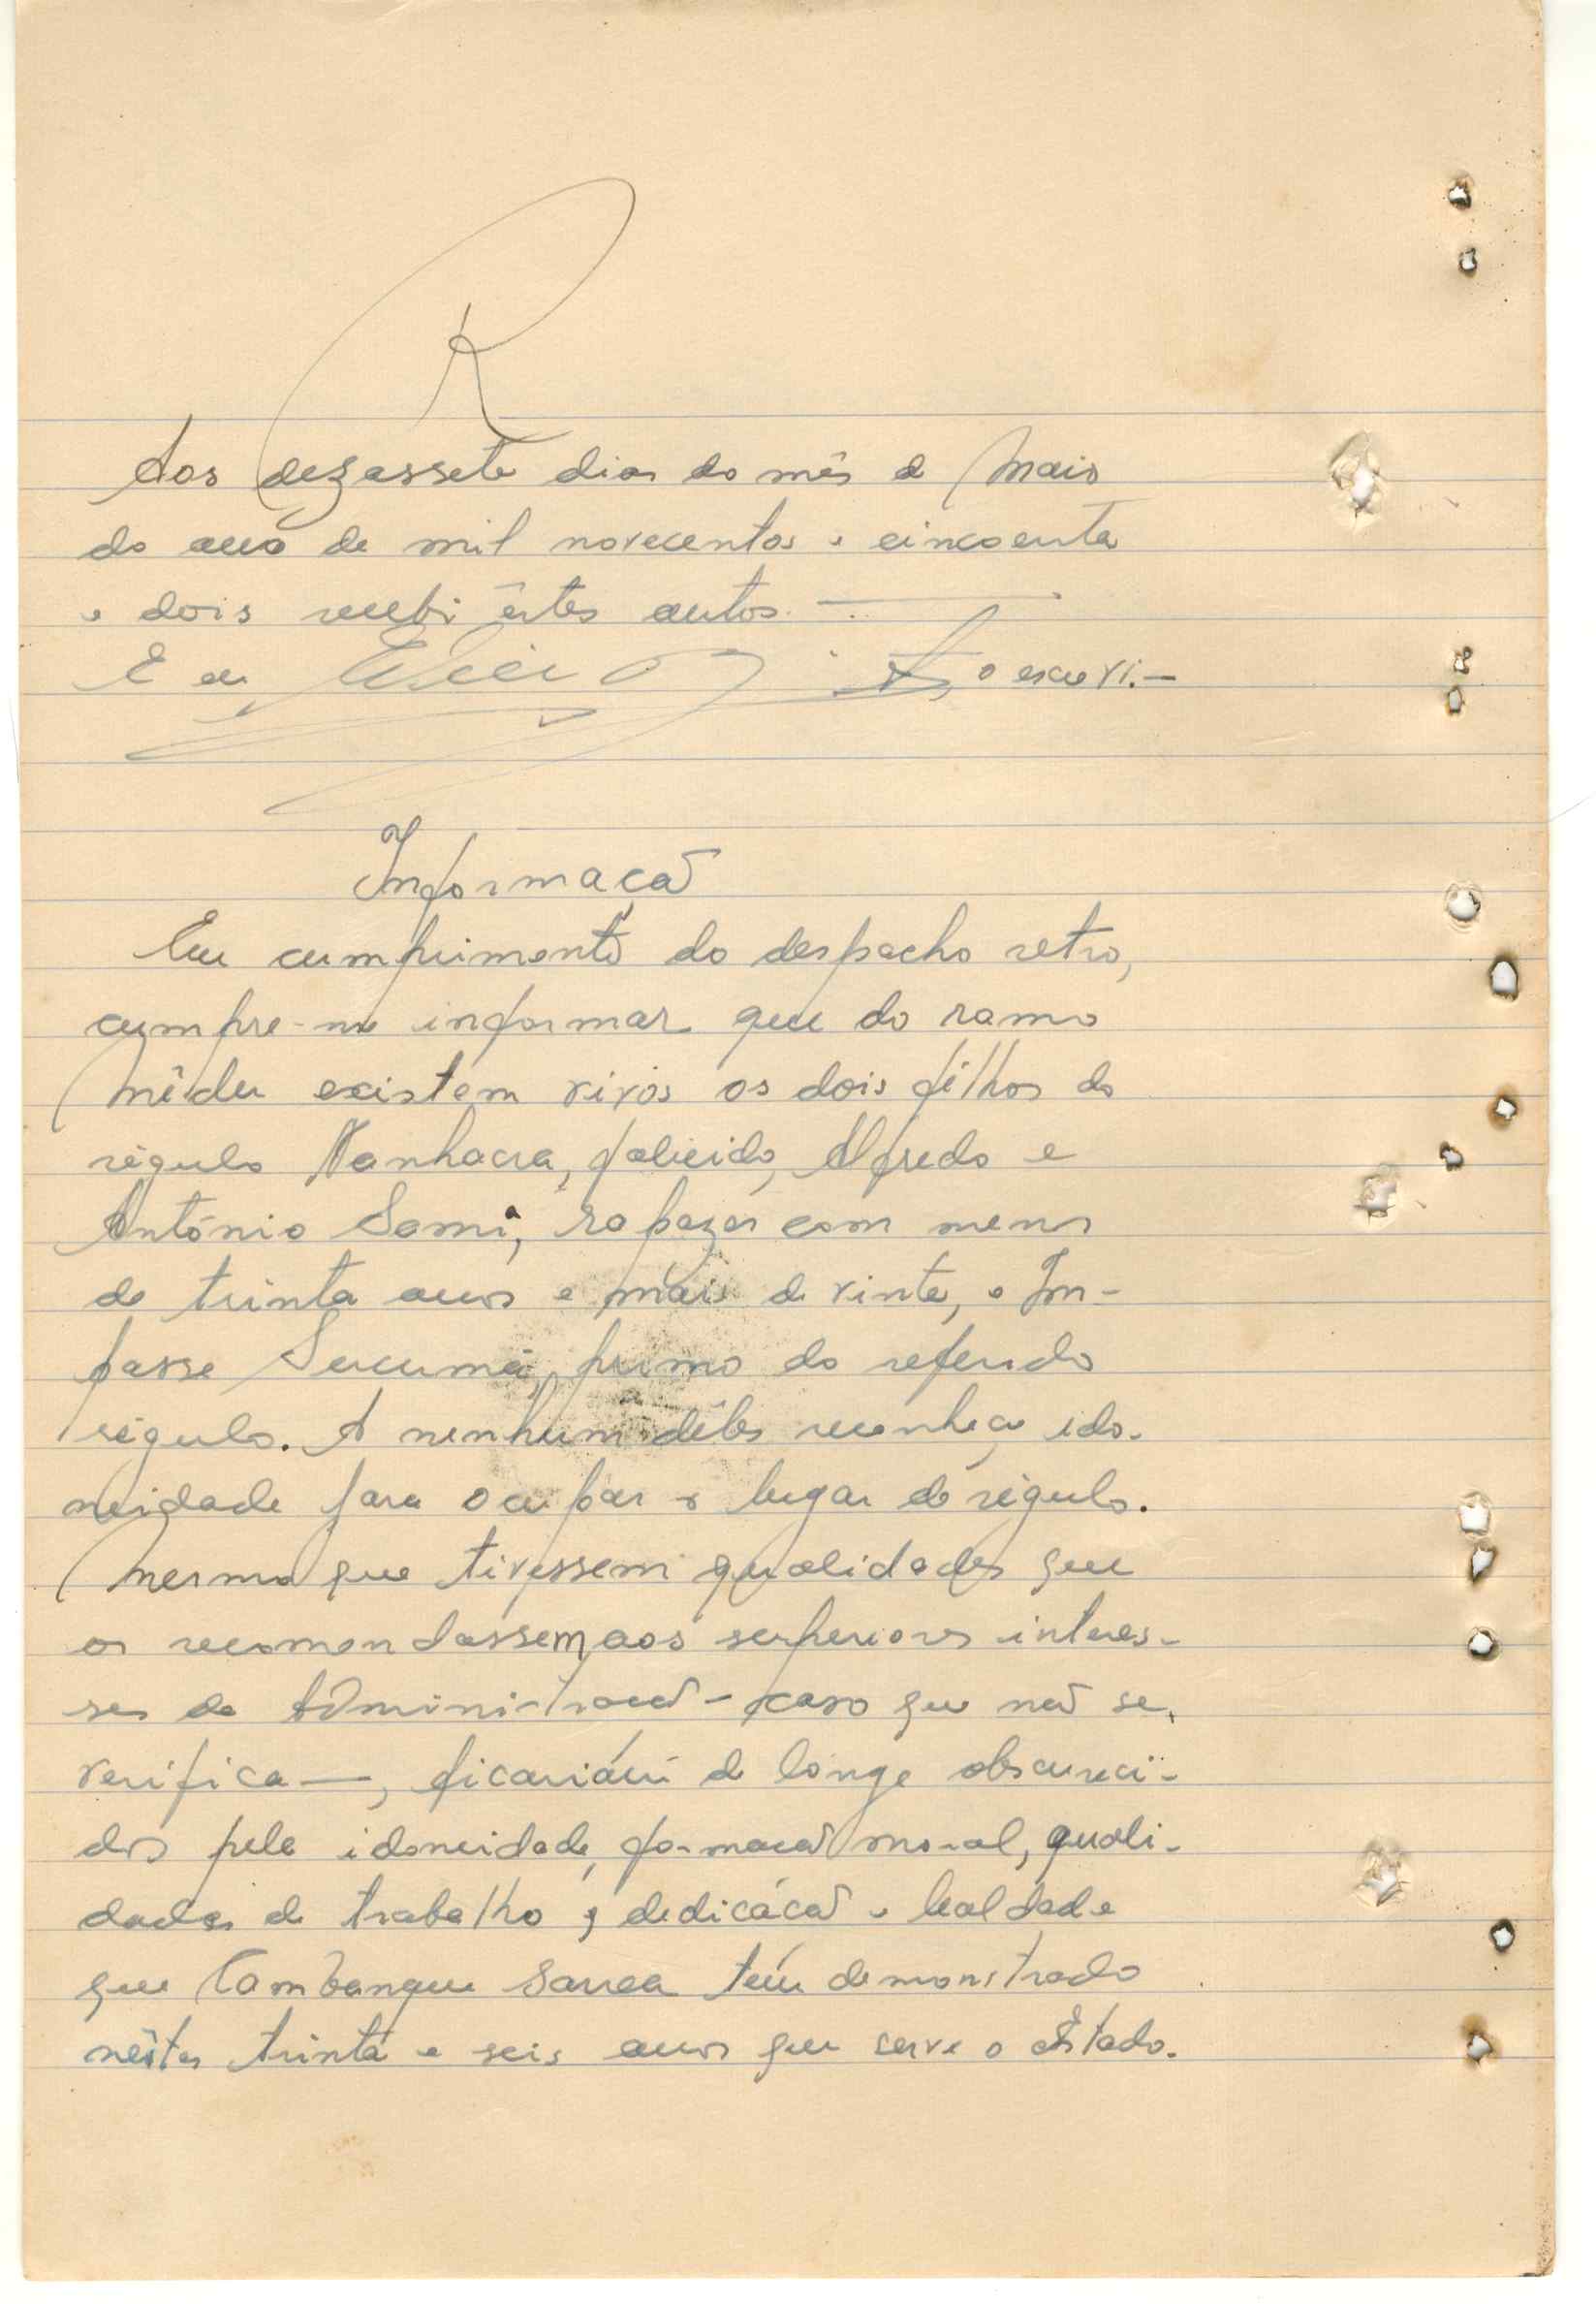 R
Aos dezassete dias do mês de Maio
do ano de mil novecentos e cincoenta
e dois recebi êstes autos.
E eu o escrevi.—
Informação
Em cumprimento do despacho retro,
cumpre-me informar que do ramo
Mêdu existem vivos os dois filhos do
régulo Nanhacra, falecido, Alfredo e
António Samá, rapazes com menos
de trinta anos e mais de vinte, e Im-
passe Sucumá, primo do referido
régulo. A nenhum dêles reconheço ido-
neidade para ocupar o lugar de régulo.
Mesmo que tivessem qualidades que
os recomendassem aos superiores interes-
ses da Administração - caso que não se
verifica —, ficariam de longe obscureci-
dos pela idoneidade, formação moral, quali-
dades de trabalho, dedicação e lealdade
que Cambanque Sanca tem demonstrado
nêstes trinta e seis anos que serve o Estado.